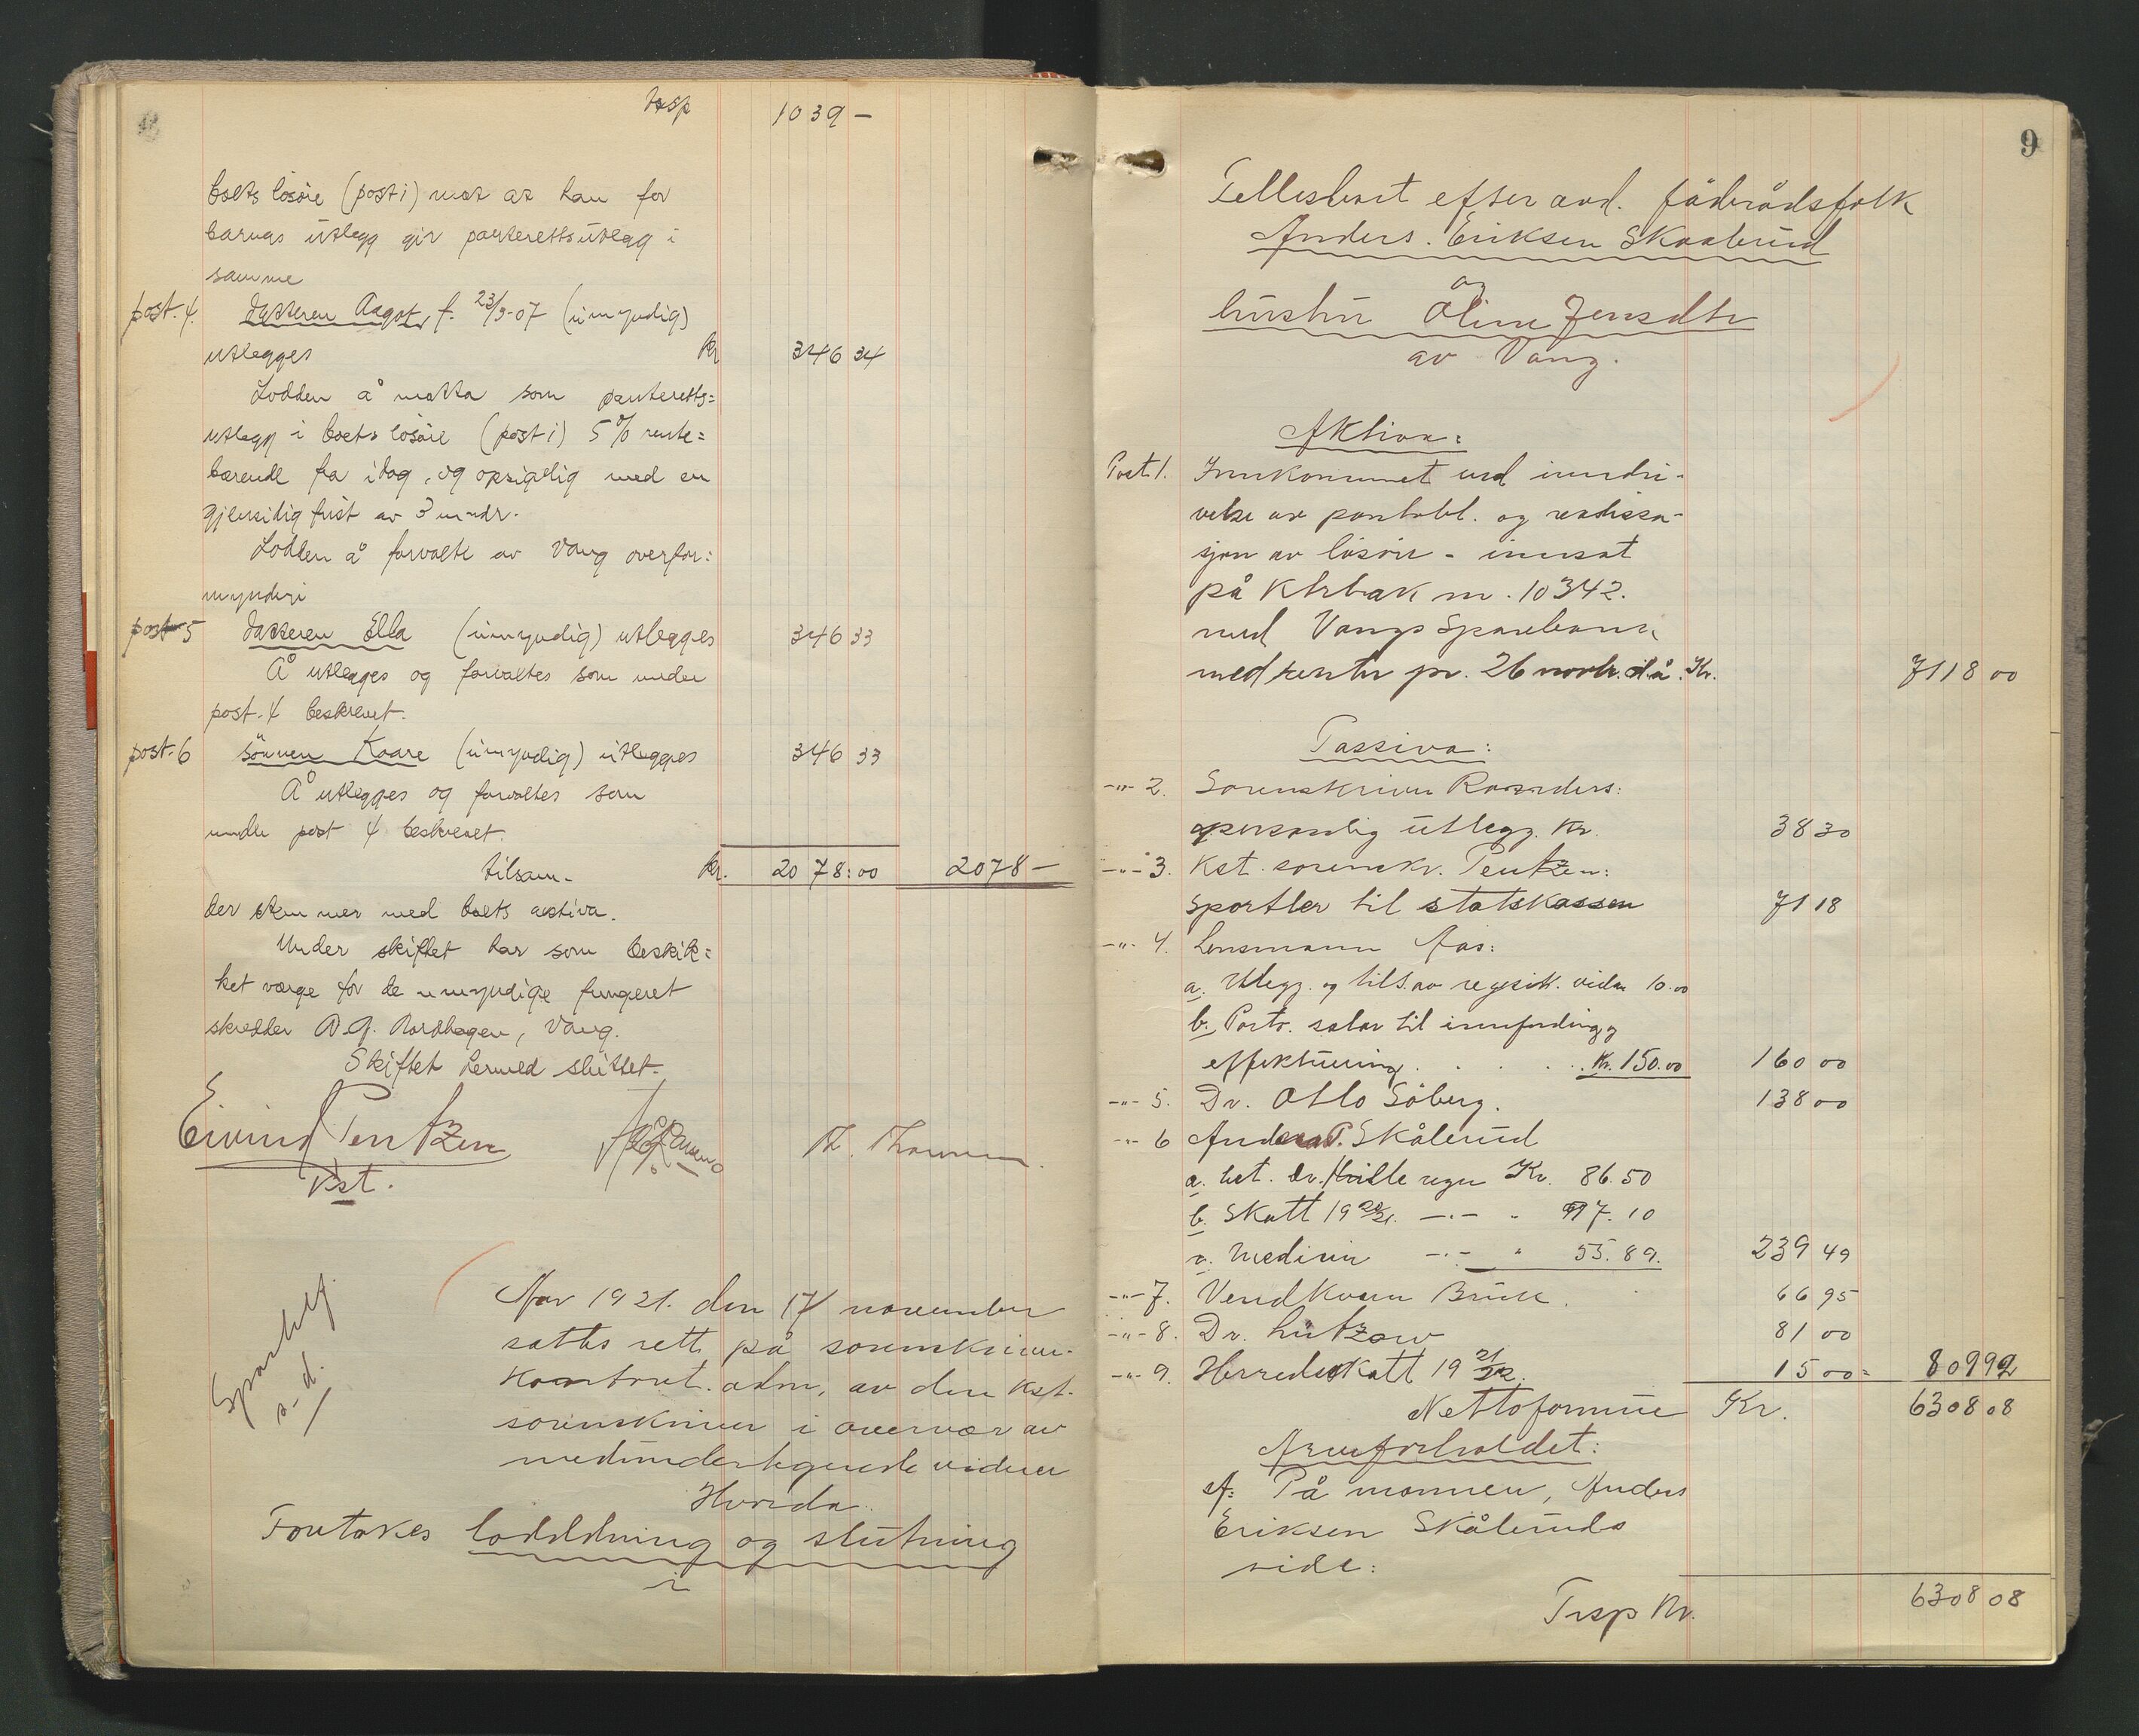 Trsp 1039 –
boets lösöre (post 1) mot at han for
barnas utlegg gir panterettsutlegg i
samme
post. 4. Datteren Aagot, f. 23/9-07 (umyndig)
utlegges Kr 346 34
Lodden å motta som panteretts=
utlegg i boets lösöre (post 1) 5 % rente=
bærende fra idag, og opsigelig med en
gjensidig frist av 3 mndr.
Lodden å forvalte av Vang overfor=
mynderi
post 5 Datteren Ella (umyndig) utlegges 346 33
Å utlegges og forvaltes som under
post. 4 beskrevet.
post. 6 Sönnen Kaare (umyndig) utlegges 346 33
Å utlegges og forvaltes som
under post 4 beskrevet.
tilsam. Kr. 2078:00 2078 –
der stemmer med boets activa.
Under skiftet har som beskik=
ket værge for de umyndige fungeret
skredder A. G. Nordhagen, Vang.
Skiftet hermed sluttet.
Eivind Pentzen
Kst.
Th.
Aar 1921. den 17 november
sattes rett på sorenskriver-
kontoret. adm, av den kst.
sorenskriver i overvær av
medundertegnede vidner
Hvorda
Foretokes loddeldning og slutning
i
9
Fellesboet efter avd. föderådsfolk
Anders. Eriksen Skaalerud
og
hustru Oline Jensdtr
av Vang.
Aktiva:
Post 1. Innkommet ved inndri-
velse av pantobl. og realisa-
sjon av lösöre - innsat
på Khrbak nr. 10342.
med Vangs Sparebank
med renter pr. 26 novbr. d.å. Kr. 7118 00
Passiva:
-"- 2. Sorenskriver Roanders:
personlig utlegg. Kr. 38 30
-"- 3. Kst. sorenskr. Pentzen:
Sportler til statskassen 71 18
-"- 4. Lensmann Aas:
a. Utlegg. og tils. av regsik. vidn 10.00
b. Porto. salar til innfordring og
effektuering . . . . . Kr. 150.00 160 00
-"- 5. Dr. Otto Söberg. 138 00
-"- 6 Anders P. Skålerud
a. bet. Dr. Hvitle regn Kr. 86.50
b. Skatt 19 20/21. -"- " 97.10
c. Medisin -"- " 55.89. 239 49
-"- 7. Vendkvern Bruk. 66 95
-"- 8. Dr. Lützow 81 00
-"- 9. Herredsskatt 19 21/22. 15 00= 809 92
Nettoformue Kr. 6308 08
Arveforholdet:
A: På mannen, Anders
Eriksen Skåleruds
side:
Trsp Kr. 6308 08